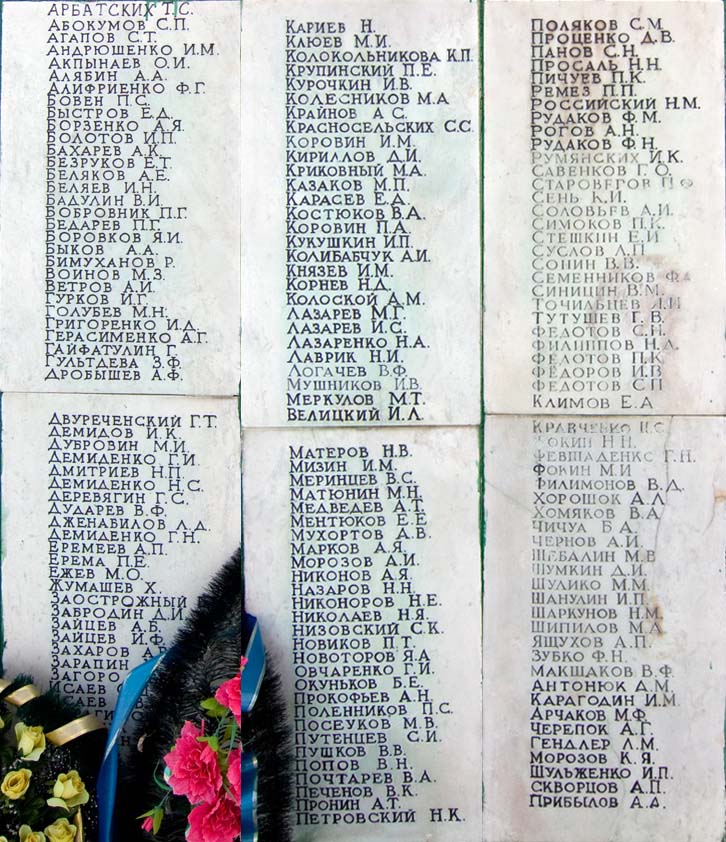 АРБАТСКИХ Т.С.
АБОКУМОВ С.П.
АГАПОВ С.Т.
АНДРЮШЕНКО И.М.
АКПЫНАЕВ О.И.
АЛЯБИН А.А.
АЛИФРИЕНКО Ф.Г.
БОВЕН П.С.
БЫСТРОВ Е.Д.
БОРЗЕНКО А.Я.
БОЛОТОВ И.П.
БАХАРЕВ А.К.
БЕЗРУКОВ Е.Т.
БЕЛЯКОВ А.Е.
БЕЛЯЕВ И.Н.
БАДУЛИН В.И.
БОБРОВНИК П.Г.
БЕДАРЕВ П.Г.
БОРОВКОВ Я.И.
БЫКОВ А.А.
БИМУХАНОВ Р.
ВОИНОВ М.З.
ВЕТРОВ А.И.
ГУРКОВ И.Г.
ГОЛУБЕВ М.Н.
ГРИГОРЕНКО И.Д.
ГЕРАСИМЕНКО А.Г.
ГАЙФАТУЛИН Г.
ГУЛЬТДЕВА З.Ф.
ДРОБЫШЕВ А.Ф.
ДВУРЕЧЕНСКИЙ Г.Т.
ДЕМИДОВ И.К.
ДУБРОВИН М.И.
ДЕМИДЕНКО Г.И.
ДМИТРИЕВ Н.П.
ДЕМИДЕНКО Н.С.
ДЕРЕВЯГИН Г.С.
ДУДАРЕВ В.Ф.
ДЖЕНАВИЛОВ Л.Д.
ДЕМИДЕНКО Г.Н.
ЕРЕМЕЕВ А.П.
ЕРЕМА П.Е.
ЕЖЕВ М.О.
ЖУМАШЕВ Х.
ЗАОСТРОЖНЫЙ
ЗАБРОДИН Д.И.
ЗАЙЦЕВ А.Б.
ЗАЙЦЕВ И.Ф.
ЗАХАРОВ
ЗАРАПИН
ЗАГОРО
ИСАЕВ
ИСАЕВ
КАРИЕВ Н.
КЛЮЕВ М.И.
КОЛОКОЛЬНИКОВА К.П.
КРУПИНСКИЙ П.Е.
КУРОЧКИН И.В.
КОЛЕСНИКОВ М.А
КРАЙНОВ А С.
КРАСНОСЕЛЬСКИХ С.С.
КОРОВИН И.М.
КИРИЛЛОВ Д.И.
КРИКОВНЫЙ М.А.
КАЗАКОВ М.П.
КАРАСЕВ Е.Д.
КОСТЮКОВ В.А.
КОРОВИН П.А.
КУКУШКИН И.П.
КОЛИБАБЧУК А.И.
КНЯЗЕВ И.М.
КОРНЕВ Н.Д.
КОЛОСКОЙ А.М.
ЛАЗАРЕВ М.Г.
ЛАЗАРЕВ И.С.
ЛАЗАРЕНКО Н.А.
ЛАВРИК Н.И.
ЛОГАЧЕВ В.Ф.
МУШНИКОВ И.В.
МЕРКУЛОВ М.Т.
ВЕЛИЦКИЙ И.Л.
МАТЕРОВ Н.В.
МИЗИН И.М.
МЕРИНЦЕВ В.С.
МАТЮНИН М.Н.
МЕДВЕДЕВ А.Т.
МЕНТЮКОВ Е.Е
МУХОРТОВ А.В.
МАРКОВ А.Я.
МОРОЗОВ Д.И.
НИКОНОВ А.Я.
НАЗАРОВ Н.Н.
НИКОНОРОВ Н.Е.
НИКОЛАЕВ Н.Я.
НИЗОВСКИЙ С.К.
НОВИКОВ П.Т.
НОВОТОРОВ Я.А
ОВЧАРЕНКО Г.И.
ОКУНЬКОВ Б.Е.
ПРОКОФЬЕВ А.Н.
ПОЛЕННИКОВ П.С.
ПОСЕУКОВ М.В.
ПУТЕНЦЕВ С.И.
ПУШКОВ В.В.
ПОПОВ В.Н.
ПОЧТАРЕВ В.А.
ПЕЧЕНОВ В.К.
ПРОНИН А.Т.
ПЕТРОВСКИЙ Н.К.
ПОЛЯКОВ С.М
ПРОЦЕНКО Д.В.
ПАНОВ С.Н.
ПРОСАЛЬ Н.Н.
ПИЧУЕВ П.К.
РЕМЕЗ П.П.
РОССИЙСКИЙ Н.М.
РУДАКОВ Ф.М.
РОГОВ А.Н.
РУДАКОВ Ф.Н.
РУМЯНСКИХ И.К.
САВЕНКОВ Г.О.
СТАРОВЕГОВ П Ф
СЕНЬ К.И.
СОЛОВЬЕВ А.И.
СИМОКОВ П.К.
СТЕШКИН Е.И
СУСЛОВ Л.П
СОНИН В.В.
СЕМЕННИКОВ Ф.А
СИНИЦИН В.М.
ТОЧИЛЬЦЕВ
ТУТУШЕВ Г.В.
ФЕДОТОВ С.Н.
ФИЛИППОВ Н.Д.
ФЕДОТОВ П.К
ФЁДОРОВ И.В
ФЕДОТОВ С.П
КЛИМОВ Е.А
КРАВЧЕНКО
ФОКИН Н.Н.
ФЕВШАДЕНКС Г.Н.
ФОКИН М.И
ФИЛИМОНОВ В.Д.
ХОРОШОК А.Л.
ХОМЯКОВ В.А
ЧИЧУА Б.А.
ЧЕРНОВ А.И
ШЕБАЛИН М.В
ШУМКИН Д.И.
ШУЛИКО М.М.
ШАНУЛИН И.П.
ШАРКУНОВ Н.М.
ШИПИЛОВ М.А
ЯЩУХОВ А.П.
ЗУБКО Ф.Н.
МАКШАКОВ В.Ф.
АНТОНЮК Д.М.
КАРАГОДИН И.М
АРЧАКОВ М.Ф.
ЧЕРЕПОК А.Г.
ГЕНДЛЕР Л.М.
МОРОЗОВ К.Я.
ШУЛЬЖЕНКО И.П.
СКВОРЦОВ А.П.
ПРИБЫЛОВ А.А.